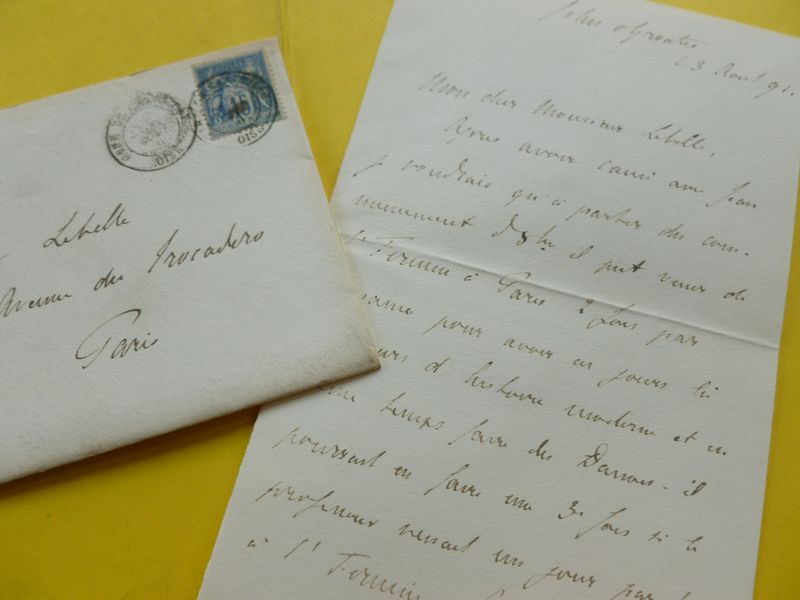 Lebelle
Avenue du Trocadero
Paris
15
OISE
John o Groats
23 Aout 91.
Mon cher Monsieur Lebelle,
Après avoir causé avec Jean
je voudrais qu'à partir du com-
mencement d' il put venir de
St Firmin à Paris 2 fois par
maine pour avoir ces jours là
cours d'histoire moderne et en
me temps faire des Danses - il
pourrait en faire une 3e fois si le
professeur venait un jour par
à St Firmin